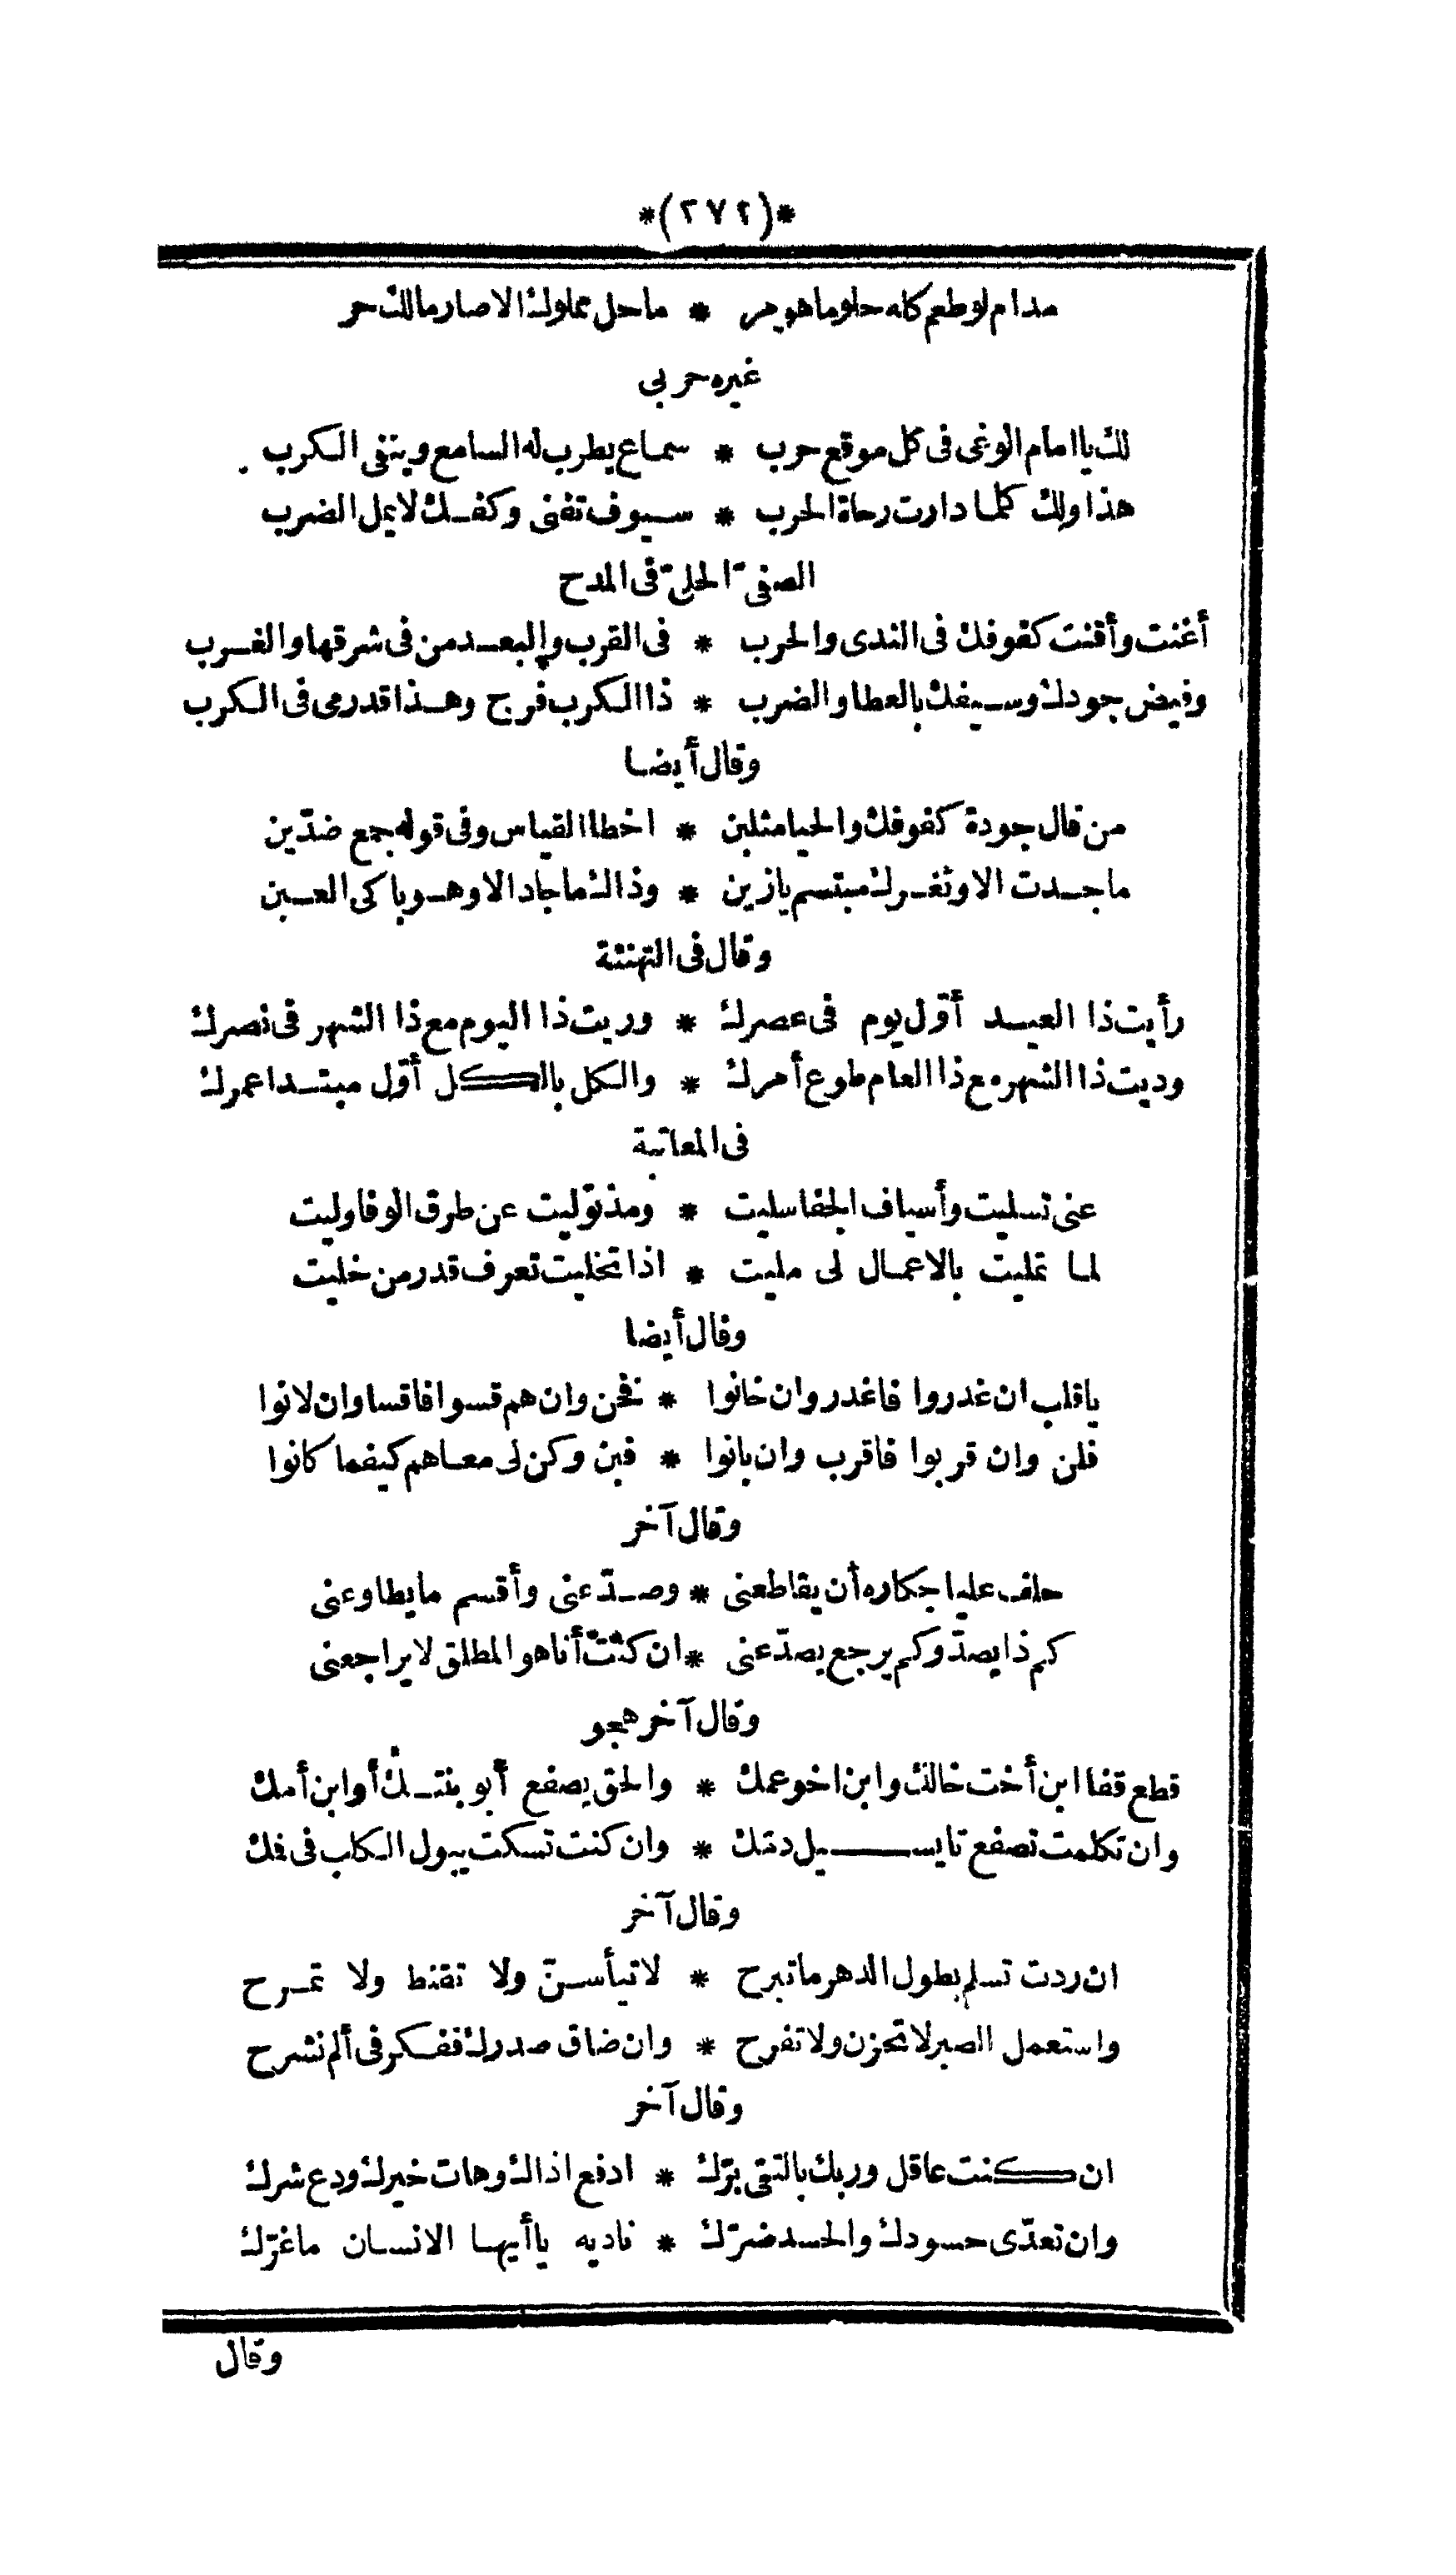 *(٢٧٢)*
مدام لو طعم كله حلو وما هو مر * ما حل مملوك الا صار مالك حر
غيره حربى
لك يا امام الوغى فى كل موقع حرب * سماع يطرب له السامع وينفى الكرب
هذا ولك كلما دارت رحاة الحرب * سيوف تفنى وكفك لايمل الضرب
الصفىّ الحلىّ فى المدح
أغنت وأقنت كفوفك فى الندى والحرب * فى القرب والبعد من فى شرقها والغرب
وفيض جودك وسيفك بالعطا والضرب * ذا الكرب فرج وهذا قد رمى فى الكرب
وقال أيضا
من قال جودة كفوفك والحيا مثلين * اخطا القياس وفى قوله جمع ضدّين
ما جدت الا وثغرك مبتسم يازين * وذاك ما جاد الا وهو باكى العين
وقال فى التهنئة
رأيت ذا العيد أوّل يوم فى عصرك * وريت ذا اليوم مع ذا الشهر فى نصرك
وديت ذا الشهر مع ذا العام طوع أمرك * والكل بالكل أوّل مبتدا عمرك
فى المعاتبة
عنى تسليت وأسياف الجفا سليت * ومذ توّليت عن طرق الوفا وليت
لما تمليت بالاعمال لى مليت * اذا تخليت تعرف قدر من خليت
وقال أيضا
ياقلب ان غدروا فاغدر وان خانوا * فخن وان هم قسوا فاقسا وان لانوا
فلن وان قربوا فاقرب وان بانوا * فبن وكن لى معاهم كيفما كانوا
وقال آخر
حلف عليا جكاره أن يقاطعنى * وصدّ عنى وأقسم ما يطاوعنى
كم ذا يصدّ وكم يرجع يصدّ عنى * ان كنت أنا هو المطلق لا يراجعنى
وقال آخر هجو
قطع قفا ابن أخت خالك وابن اخو عمك * والحق يصفع أبو بنتك أو ابن أمك
وان تكلمت تصفع تا يسيل دمك * وان كنت تسكت يبول الكلب فى فك
وقال آخر
ان ردت تسلم بطول الدهر ما تبرح * لا تيأسنّ ولا تقنط ولا تمرح
واستعمل الصبر لا تحزن ولا تفرح * وان ضاق صدرك ففكر فى ألم نشرح
وقال آخر
ان كنت عاقل وربك بالتقى برّك * ادفع اذاك وهات خيرك ودع شرك
وان تعدّى حسودك والحسد ضرّك * ناديه يا أيها الانسان ما غرّك
وقال